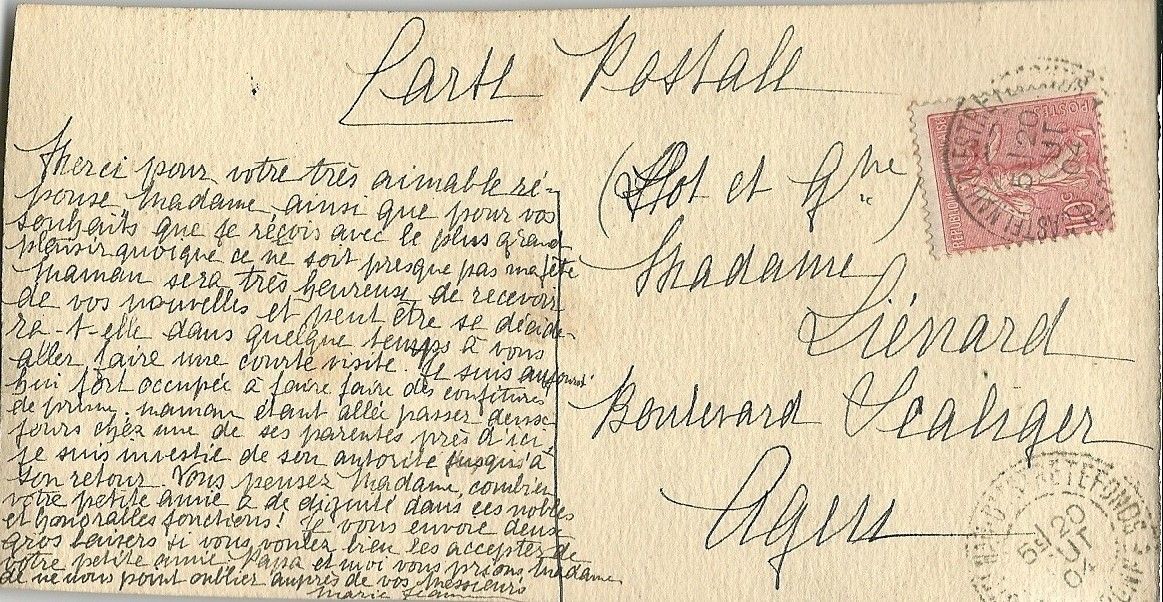 Carte Postale
Merci pour votre très aimable ré-
ponse Madame ainsi que pour vos
souhaits que je reçois avec le plus grand
plaisir quoique ce ne soit presque pas ma fête
Maman sera très heureuse de recevoir
de vos nouvelles et peut être se décide-
ra-t-elle dans quelque temps à vous
aller faire une courte visite. Je suis aujourd'
hui fort occupée à faire faire des confitures
de prune. Maman étant allée passer deux
jours chez une de ses parentes près d'ici,
je suis investie de son autorité jusqu'à
son retour. Vous pensez Madame, combien
votre petite amie a de dignité dans ces nobles
et honorables fonctions! Je vous envoie deux
gros baisers si vous voulez bien les accepter de
votre petite amie. Papa et moi vous prions Madame
de ne nous point oublier auprès de vos Messieurs
Marie
(Lot et Gne)
Madame
Liénard
Boulevard Scaliger
Agen
REPUBLIQUE FRANÇAISE
POSTES
10c
20
04
20
04